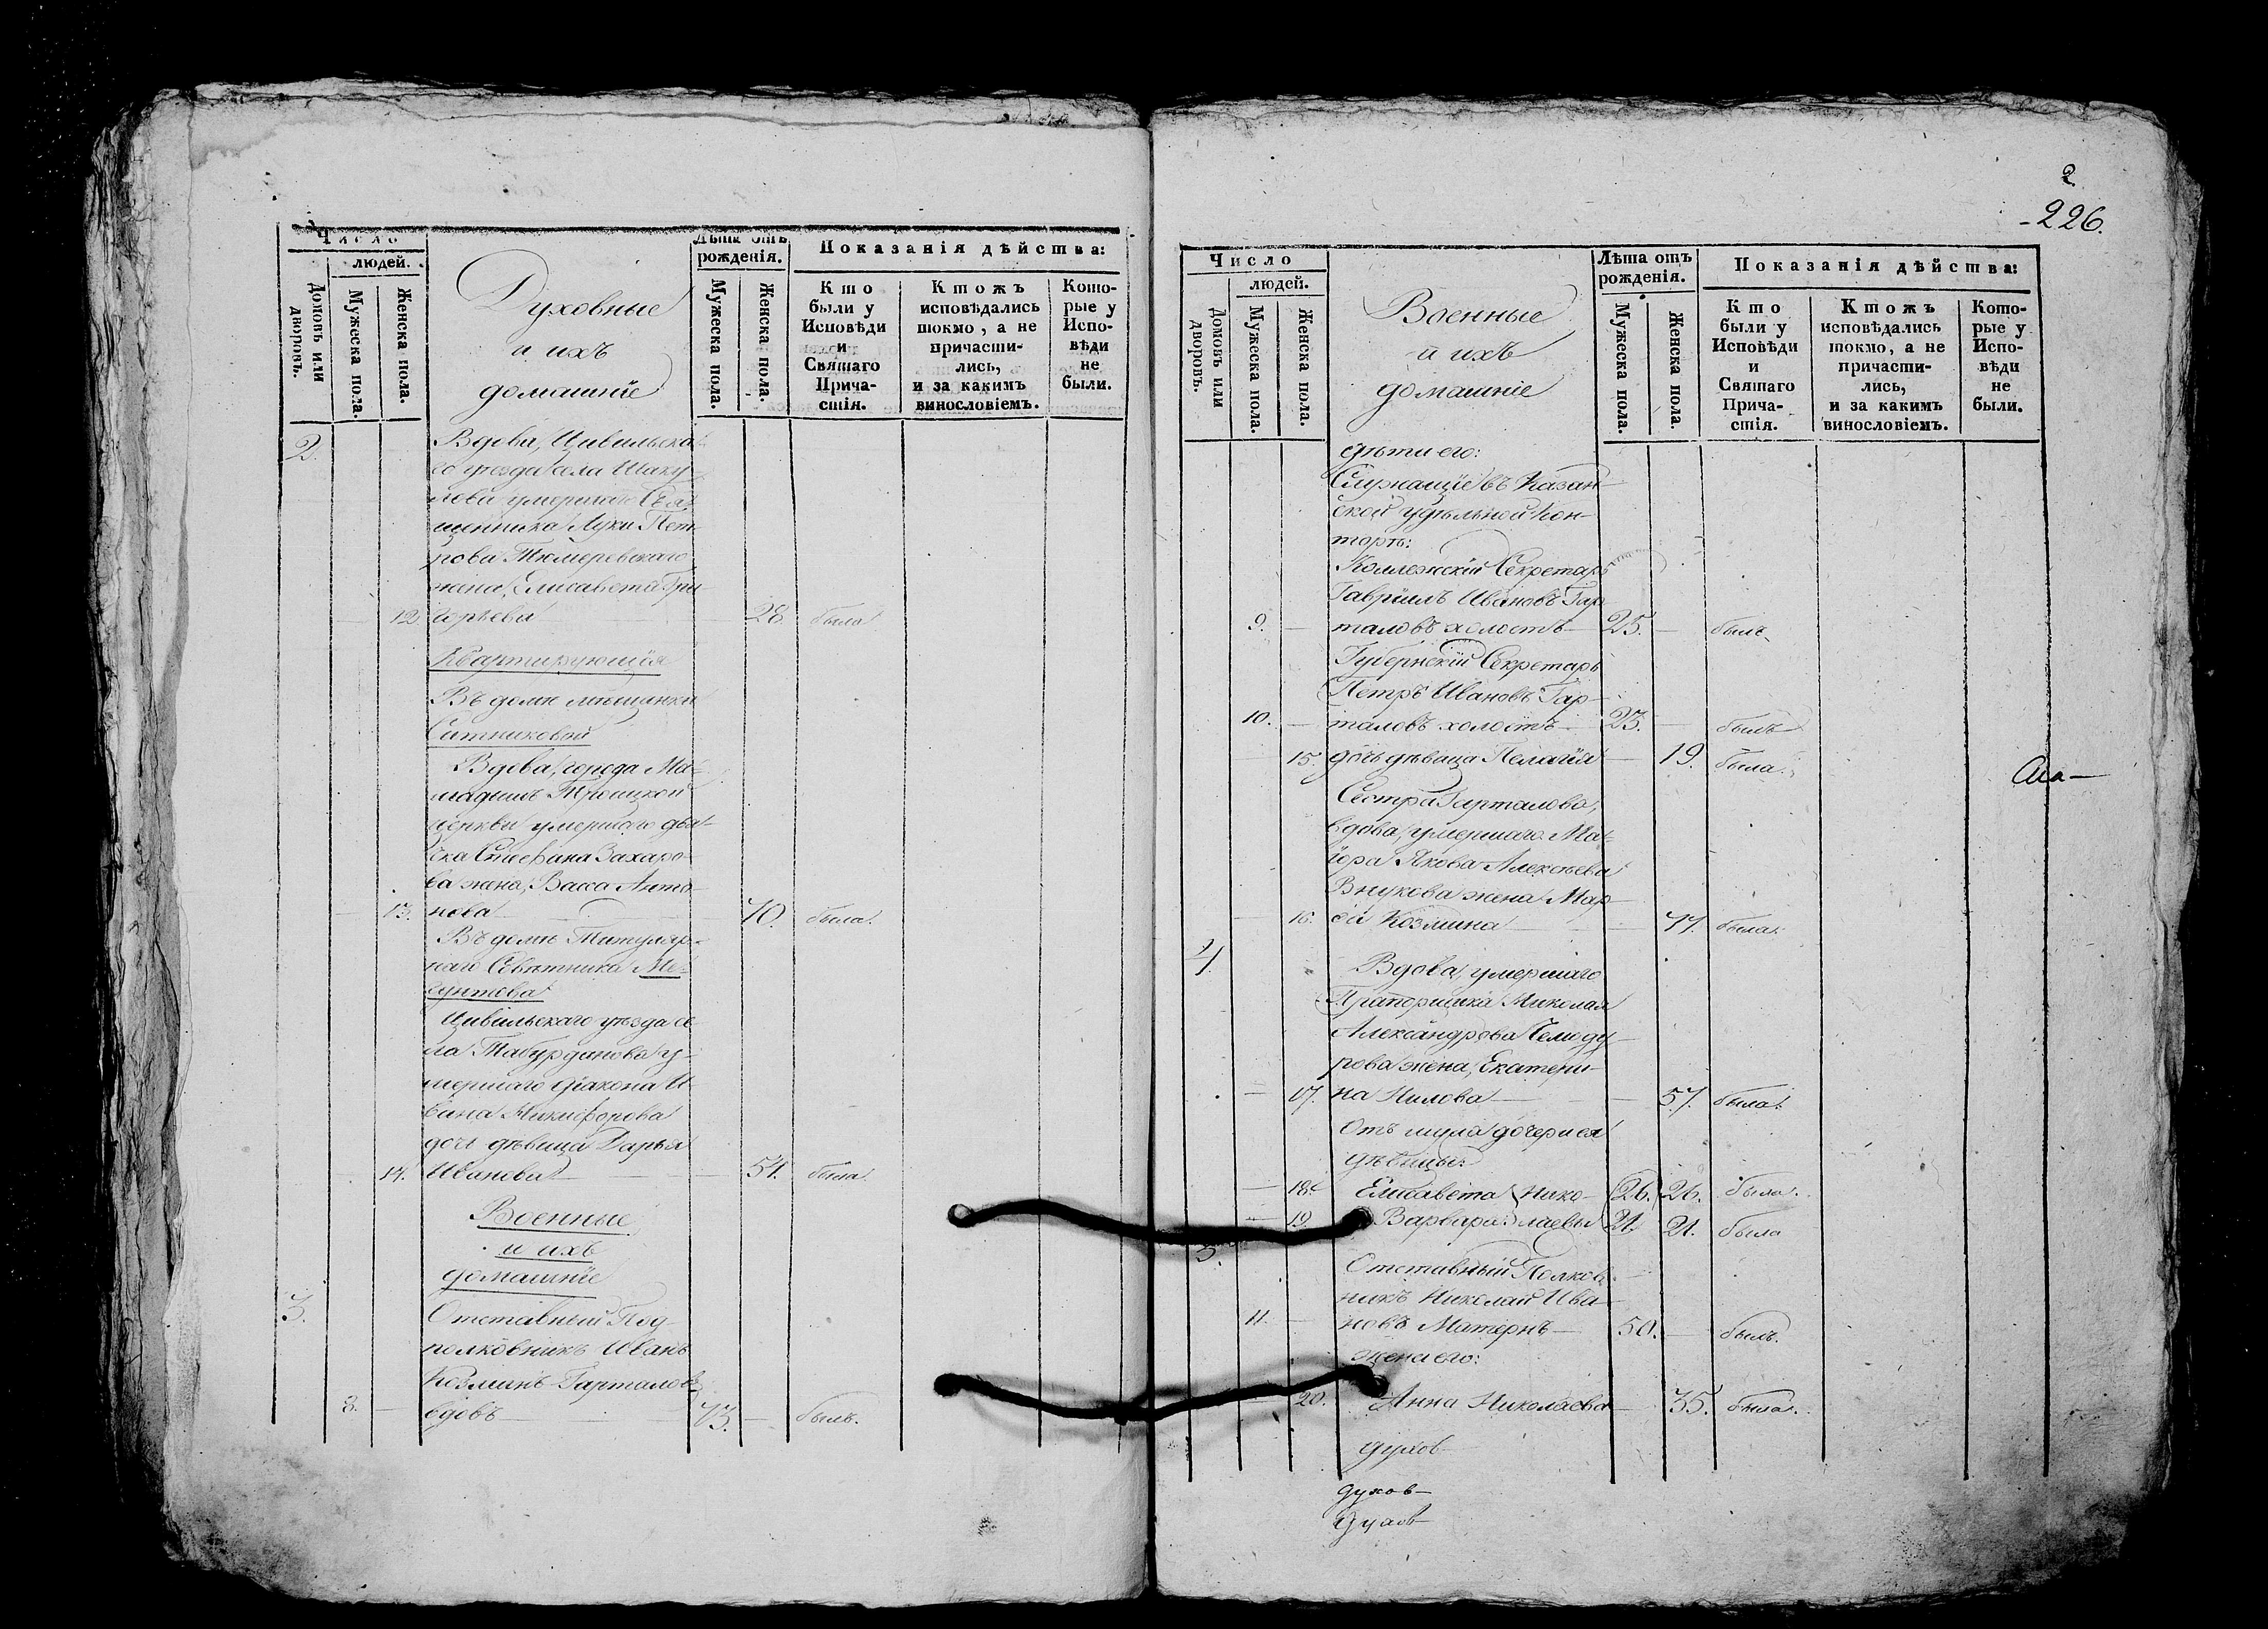 Число
людей.
Домовъ или дворовъ.
Мужеска пола.
Женска пола.
Духовные
и ихъ
домашніе
Лѣта отъ
рожденія.
Мужеска пола.
Женска пола.
Показанія дѣйства:
Кто
были у
Исповѣди
и
Святаго
Прича-
стія.
Ктожъ
исповѣдались
токмо, а не
причасти-
лись,
и за какимъ
винословіемъ.
Кото-
рые у
Испо-
вѣди
не
были.
2. Вдова, Цивильска-
го уѣзда села Шаку
лова умершаго Свя-
щенника Луки Пет-
рова Тюмеревскаго
жена, Елисавета Гри-
12 горьева 28. была.
Квартирующія
Въ домѣ мѣщанки
Ситниковой
Вдова, города Ма-
мадыш Троицкой
церкви умершаго дья-
чка Стефана Захаро-
ва жена, Васса Анто-
13. нова 70. была.
Въ домѣ Титуляр-
наго Совѣтника Ме-
сунтова
Цивильскаго уѣзда се
ла Табурданова у-
мершаго діакона И
вана Никифорова
дочь дѣвица Дарья
14. Иванова 54. была.
Военные
и ихъ
домашніе
3. Отставный Под-
полковникъ Иванъ
Козминъ Гарталовъ
8. вдовъ 73. былъ.
2
226.
Число
людей.
Домовъ или дворовъ.
Мужеска пола.
Женска пола.
Военные
и ихъ
домашніе
Лѣта отъ
рожденія.
Мужеска пола.
Женска пола.
Показанія дѣйства:
Кто
были у
Исповѣди
и
Святаго
Прича-
стія.
Ктожъ
исповѣдались
токмо, а не
причасти-
лись,
и за какимъ
винословіемъ.
Кото-
рые у
Испо-
вѣди
не
были.
дѣти его:
Служащіе въ Казан
ской удѣльной Кон-
торѣ:
Коллежскій Секретарь
Гавріилъ Ивановъ Гар
9. таловъ холостъ 25. былъ
Губернскій Секретарь
Петръ Ивановъ Гар-
10. таловъ холостъ 23. былъ
15. дочь дѣвица Пелагія 19. была.
Сестра Гарталова,
вдова, умершаго Ма-
іора Якова Алексѣева
Внукова жена Мар
16. ѳа Козмина 77. была.
4. Вдова, умершаго
Прапорщика Николая
Александрова Чемоду
рова жена, Екатери-
17. на Нилова 57. была.
Отъ мужа дочери ея
дѣвицы:
18. Елисавета Нико- 26. 26. была.
19. Варвара лаевы 21. 21. была
5. Отставный Полков
никъ Николай Ива
11. новъ Матернъ 50. былъ.
жена его:
20. Анна Николаева 35. была.
духов
духов
духов